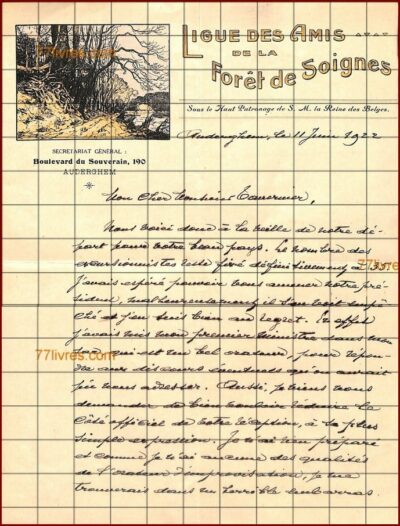 77livres.com
LIGUE DES AMIS
DE LA
FORÊT DE SOIGNES
Sous le Haut Patronage de S. M. la Reine des Belges.
SECRÉTARIAT GÉNÉRAL :
Boulevard du Souverain, 190
AUDERGHEM
Auderghem, le 11 Juin 1922
Mon cher Monsieur Tavernier,
Nous voici donc à la veille de notre dé-
part pour votre beau pays. Le nombre des
excursionnistes reste fixé définitivement à 33.
77livres.com
J'avais espéré pouvoir vous amener notre pré-
sident, malheureusement il s'en voit empê-
ché et j'en suis bien au regret. En effet
j'avais mis mon premier ministre dans mon
77livres.com
qui est un bel orateur, pour répon-
dre aux discours qu'on aurait
pu nous adresser. Aussi, je viens vous
demander de bien vouloir réduire le
côté officiel de votre réception, à la plus
simple expression. Je n'ai rien préparé
et comme je n'ai aucune des qualités
de l'orateur d'improvisation, je me
trouverais dans un horrible embarras